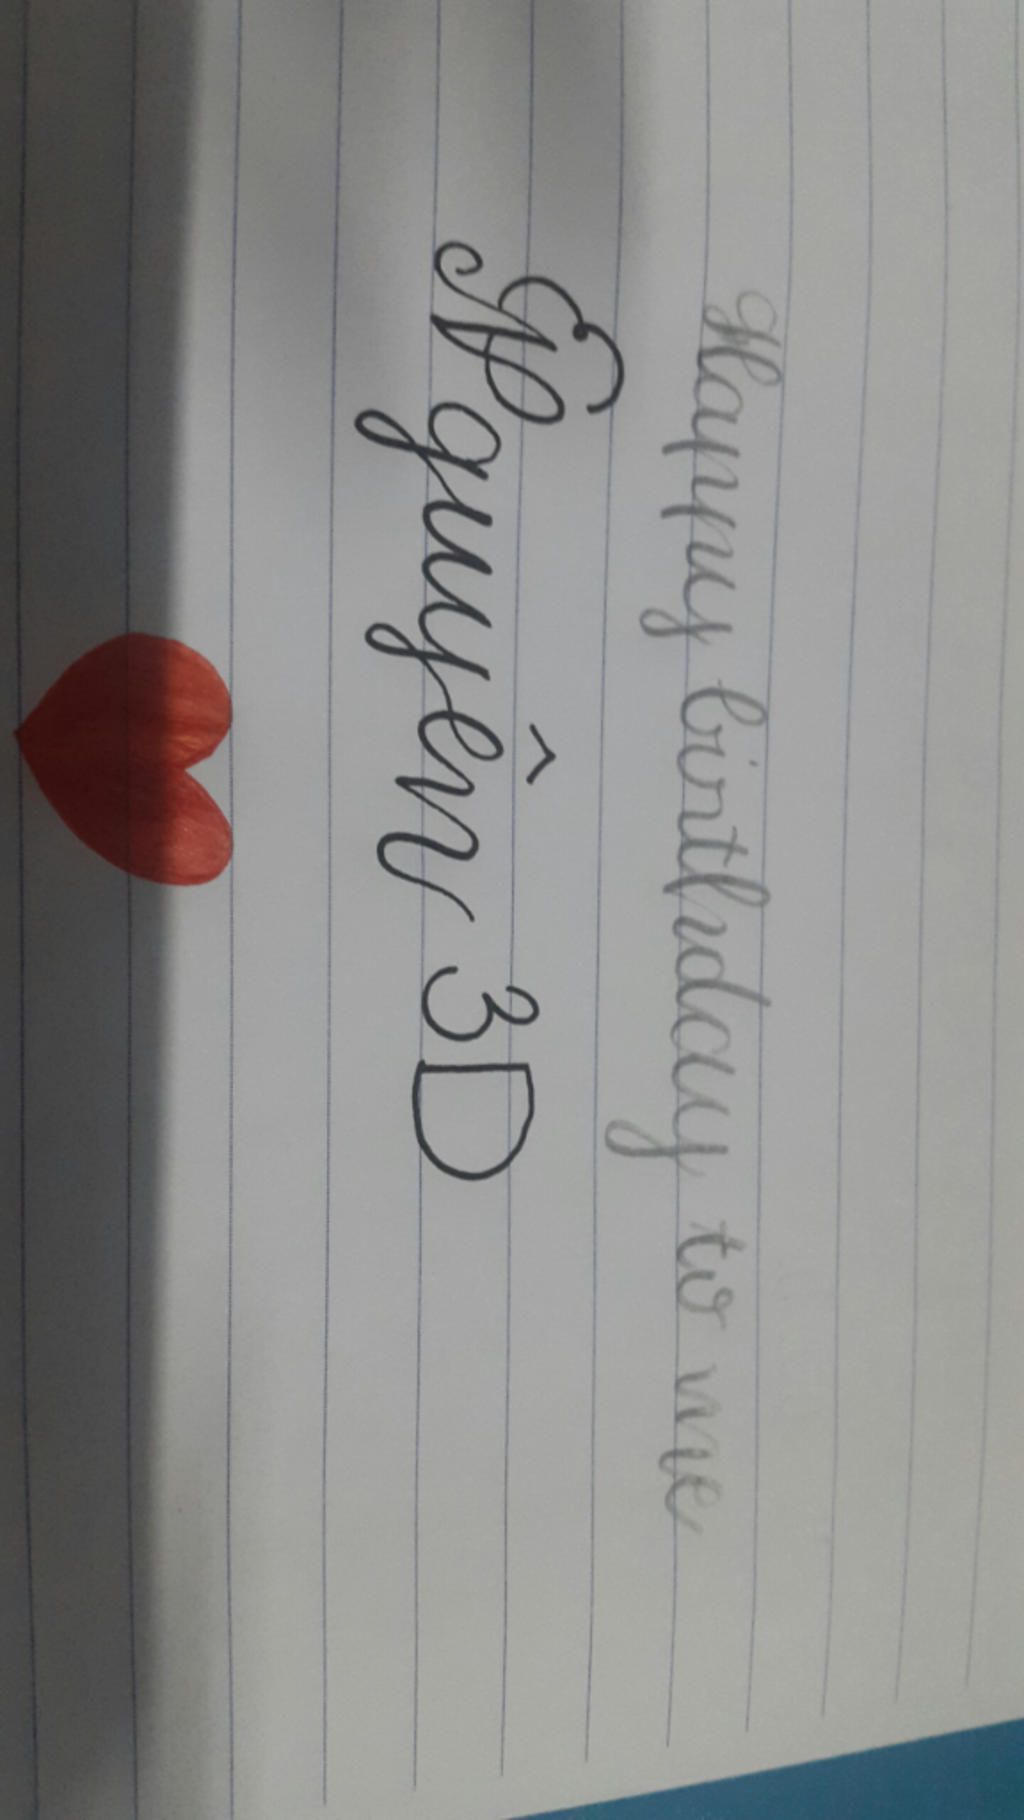 Happy birthday to me
Nguyên 3D